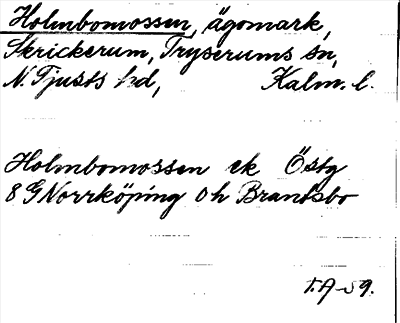 Holmbomossen, ägomark,
Skrickerum, Tryserums sn,
N. Tjusts hd, Kalm. l.
Holmbomossen ek Östg
8 G Norrköping 0 h Brantsbo
T.A-59.